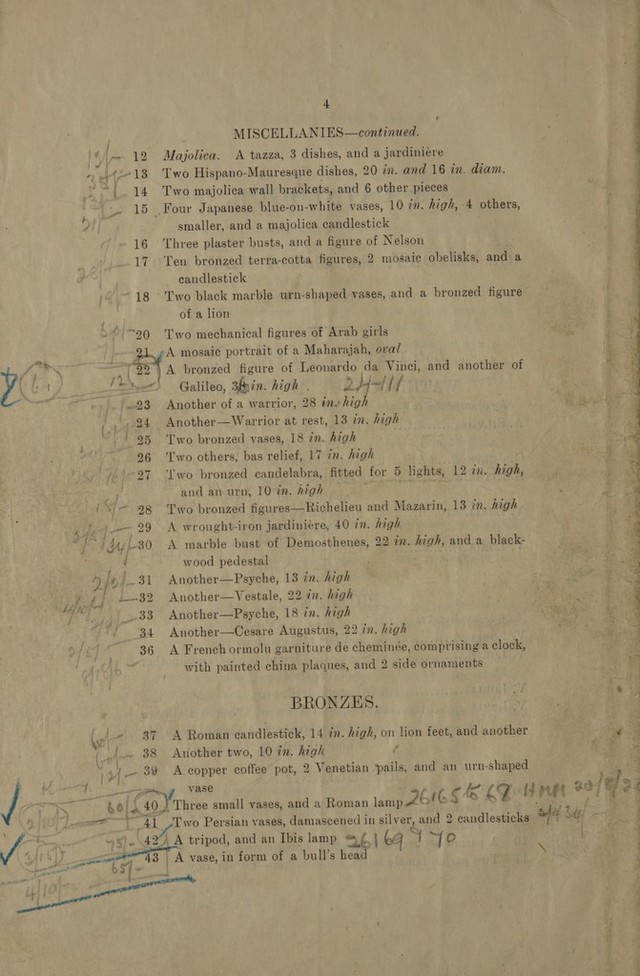 4
MISCELLANIES—continued.
12 Majolica. A tazza, 3 dishes, and a jardinière
13 Two Hispano-Mauresque dishes, 20 in. and 16 in. diam.
14 Two majolica wall brackets, and 6 other pieces
15 Four Japanese blue-on-white vases, 10 in. high, 4 others,
smaller, and a majolica candlestick
16 Three plaster busts, and a figure of Nelson
17 Ten bronzed terra-cotta figures, 2 mosaic obelisks, and a
candlestick
18 Two black marble urn-shaped vases, and a bronzed figure
of a lion
20 Two mechanical figures of Arab girls
21 A mosaic portrait of a Maharajah, oval
22 A bronzed figure of Leonardo da Vinci, and another of
Galileo, in. high
23 Another of a warrior, 28 in. high
24 Another—Warrior at rest, 13 in. high
25 Two bronzed vases, 18 in. high
26 Two others, bas relief, 17 in. high
27 Two bronzed candelabra, fitted for 5 lights, 12 in. high,
and an urn, 10 in. high
28 Two bronzed figures—Richelieu and Mazarin, 13 in. high
29 A wrought-iron jardinière, 40 in. high
30 A marble bust of Demosthenes, 22 in. high, and a black-
wood pedestal
31 Another—Psyche, 13 in. high
32 Another—Vestale, 22 in. high
33 Another—Psyche, 18 in. high
34 Another—Cesare Augustus, 22 in. high
36 A French ormolu garniture de cheminée, comprising a clock,
with painted china plaques, and 2 side ornaments
BRONZES.
37 A Roman candlestick, 14 in. high, on lion feet, and another
38 Another two, 10 in. high
39 A copper coffee pot, 2 Venetian pails, and an urn-shaped
vase
60/ 40 Three small vases, and a Roman lamp
41 Two Persian vases, damascened in silver, and 2 candlesticks
42 A tripod, and an Ibis lamp 26169 70
43 A vase, in form of a bull's head
65/-
4/10/-